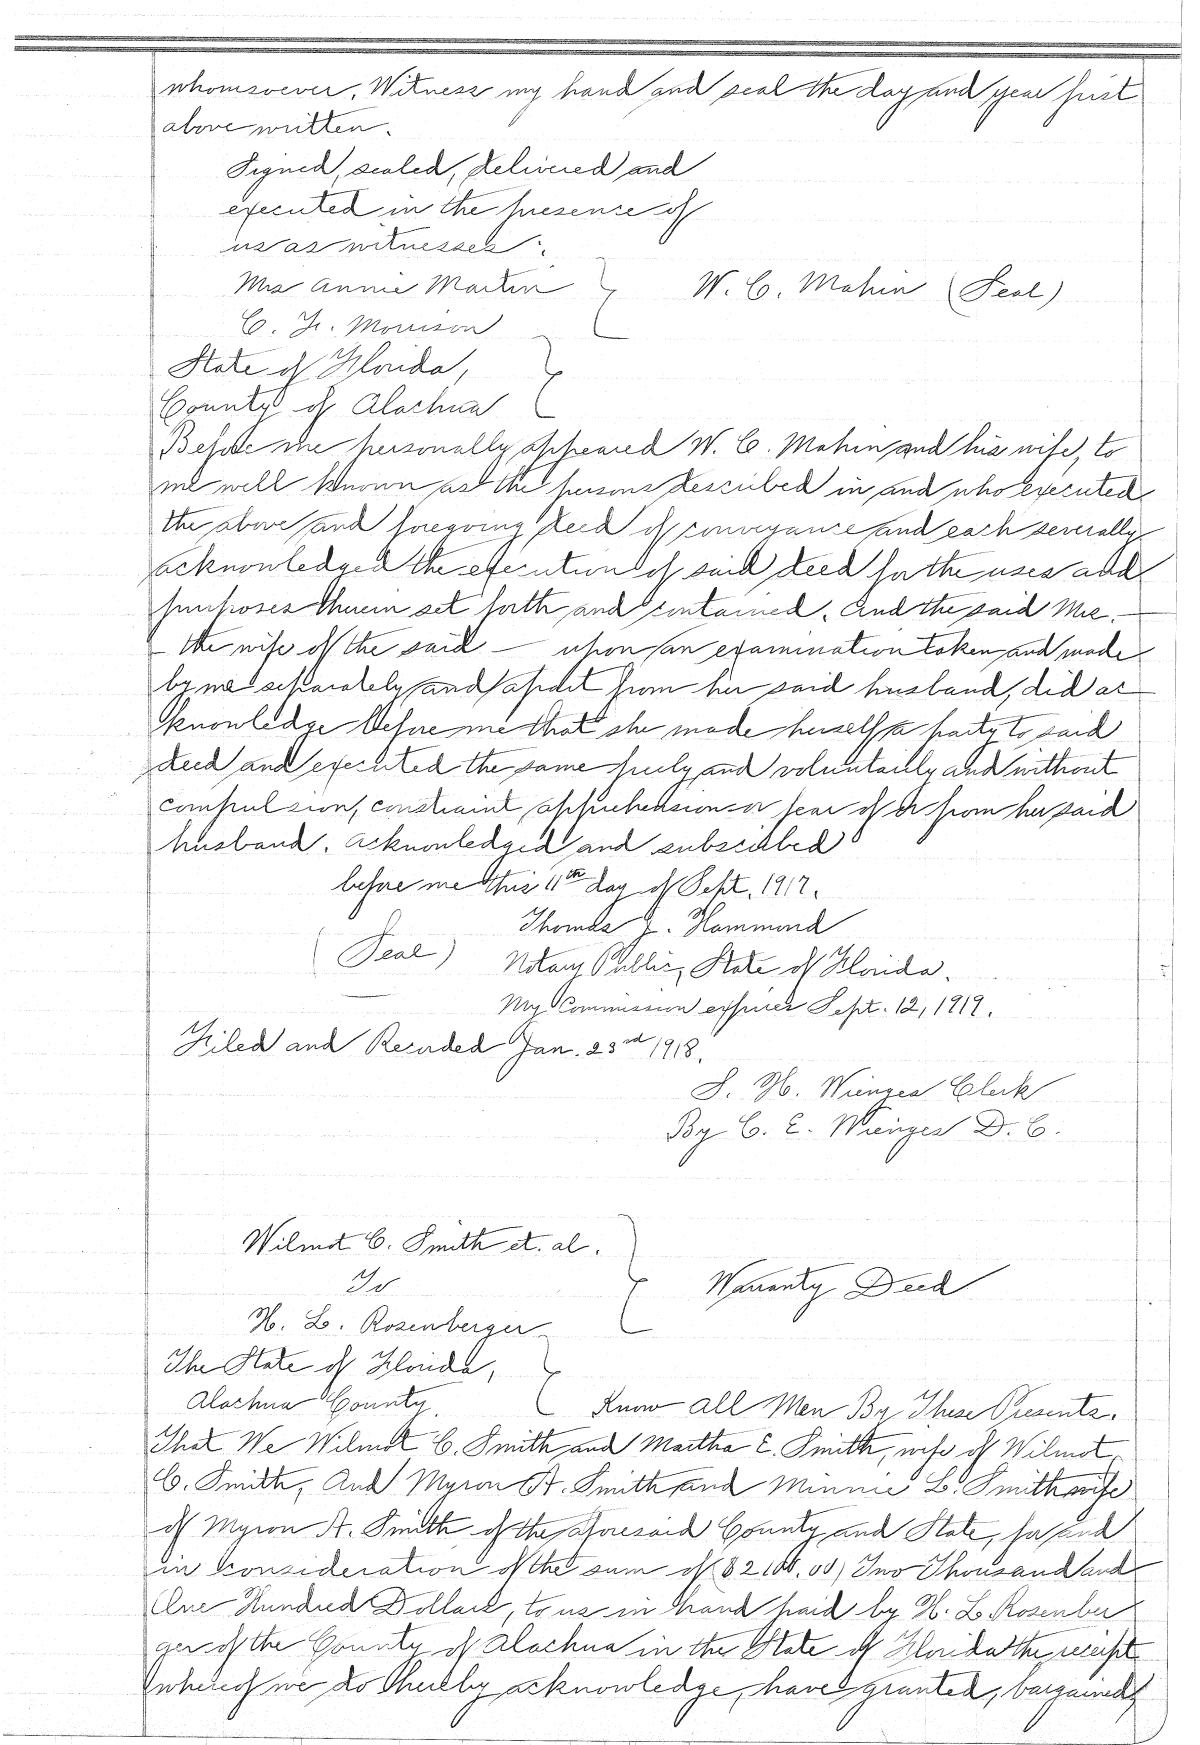 whomsoever. Witness my hand and seal the day and year first
above written.
Signed, sealed, delivered and
executed in the presence of
us as witnesses:
Mrs Annie Martin
W. C. Mahin (Seal)
C. F. Morrison
State of Florida,
County of Alachua
Before me personally appeared W. C. Mahin and his wife, to
me well known as the persons described in and who executed
the above and foregoing deed of conveyance and each severally
acknowledged the execution of said deed for the uses and
purposes therein set forth and contained. And the said Mrs. —
— the wife of the said — upon an examination taken and made
by me separately and apart from her said husband, did ac
knowledge before me that she made herself a party to said
deed and executed the same freely and voluntarily and without
compulsion, constraint, apprehension or fear of or from her said
husband. Acknowledged and subscribed
before me this 11th day of Sept. 1917.
Thomas J. Hammond
(Seal) Notary Public, State of Florida.
My Commission expires Sept. 12, 1919.
Filed and Recorded Jan. 23rd 1918.
S. H. Wienges Clerk
By C. E. Wienges D. C.
Wilmot C. Smith et. al.
To
Warranty Deed
H. L. Rosenberger
The State of Florida,
Alachua County.
Know All Men By These Presents.
That We Wilmot C. Smith and Martha E. Smith, wife of Wilmot
C. Smith, And Myron A. Smith and Minnie L. Smith wife
of Myron A. Smith of the aforesaid County and State, for and
in consideration of the sum of ($2100.00) Two Thousand and
One Hundred Dollars, to us in hand paid by H. L. Rosenber
ger of the County of Alachua in the State of Florida the receipt
whereof we do hereby acknowledge, have granted, bargained,